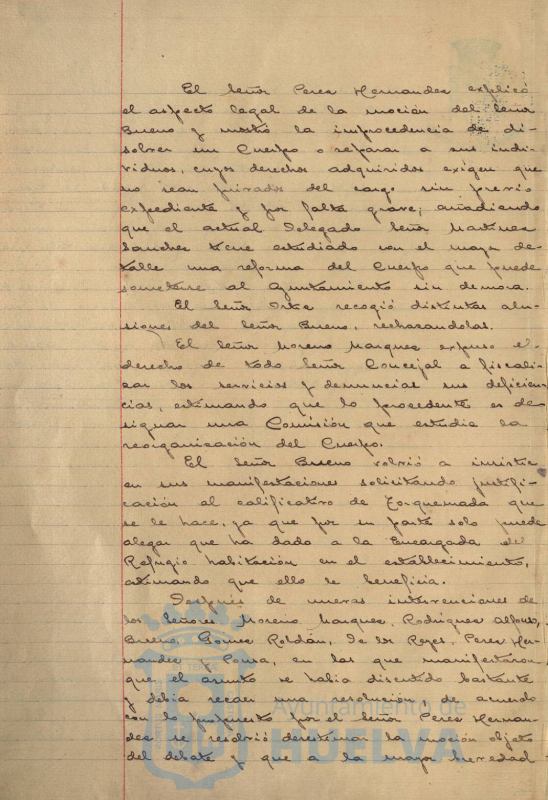 El Señor Perez Hernandez explicó
el aspecto legal de la moción del Señor
Bueno y mostró la improcedencia de di-
solver un Cuerpo o separar a sus indi-
viduos, cuyos derechos adquiridos exigen que
no sean privados del cargo sin previo
expediente y por falta grave; añadiendo
que el actual Delegado Señor Martinez
Sanchez tiene estudiado con el mayor de-
talle una reforma del Cuerpo que puede
someterse al Ayuntamiento sin demora.
El Señor Ortiz recogió distintas alu-
siones del Señor Bueno, rechazandolas.
El Señor Moreno Marquez expuso el
derecho de todo Señor Concejal a fiscali-
zar los servicios y denunciar sus deficien-
cias, estimando que lo procedente es de-
signar una Comisión que estudie la
reorganización del Cuerpo.
El Señor Bueno volvió a insistir
en sus manifestaciones solicitando justifi-
cación al calificativo de Torquemada que
se le hace, ya que por su parte solo puede
alegar que ha dado a la Encargada del
Refugio habitación en el establecimiento,
estimando que ello se beneficia.
Después de nuevas intervenciones de
los Señores Moreno Marquez, Rodriguez Alfonso,
Bueno, Gomez Roldán, De los Reyes, Perez Her-
nandez y Ponsa, en las que manifestaron
que el asunto se habia discutido bastante
y debia recaer una resolución, de acuerdo
con lo propuesto por el Señor Perez Hernan-
dez se resolvió desestimar la moción objeto
del debate y que a la mayor brevedad
Ayuntamiento de
HUELVA